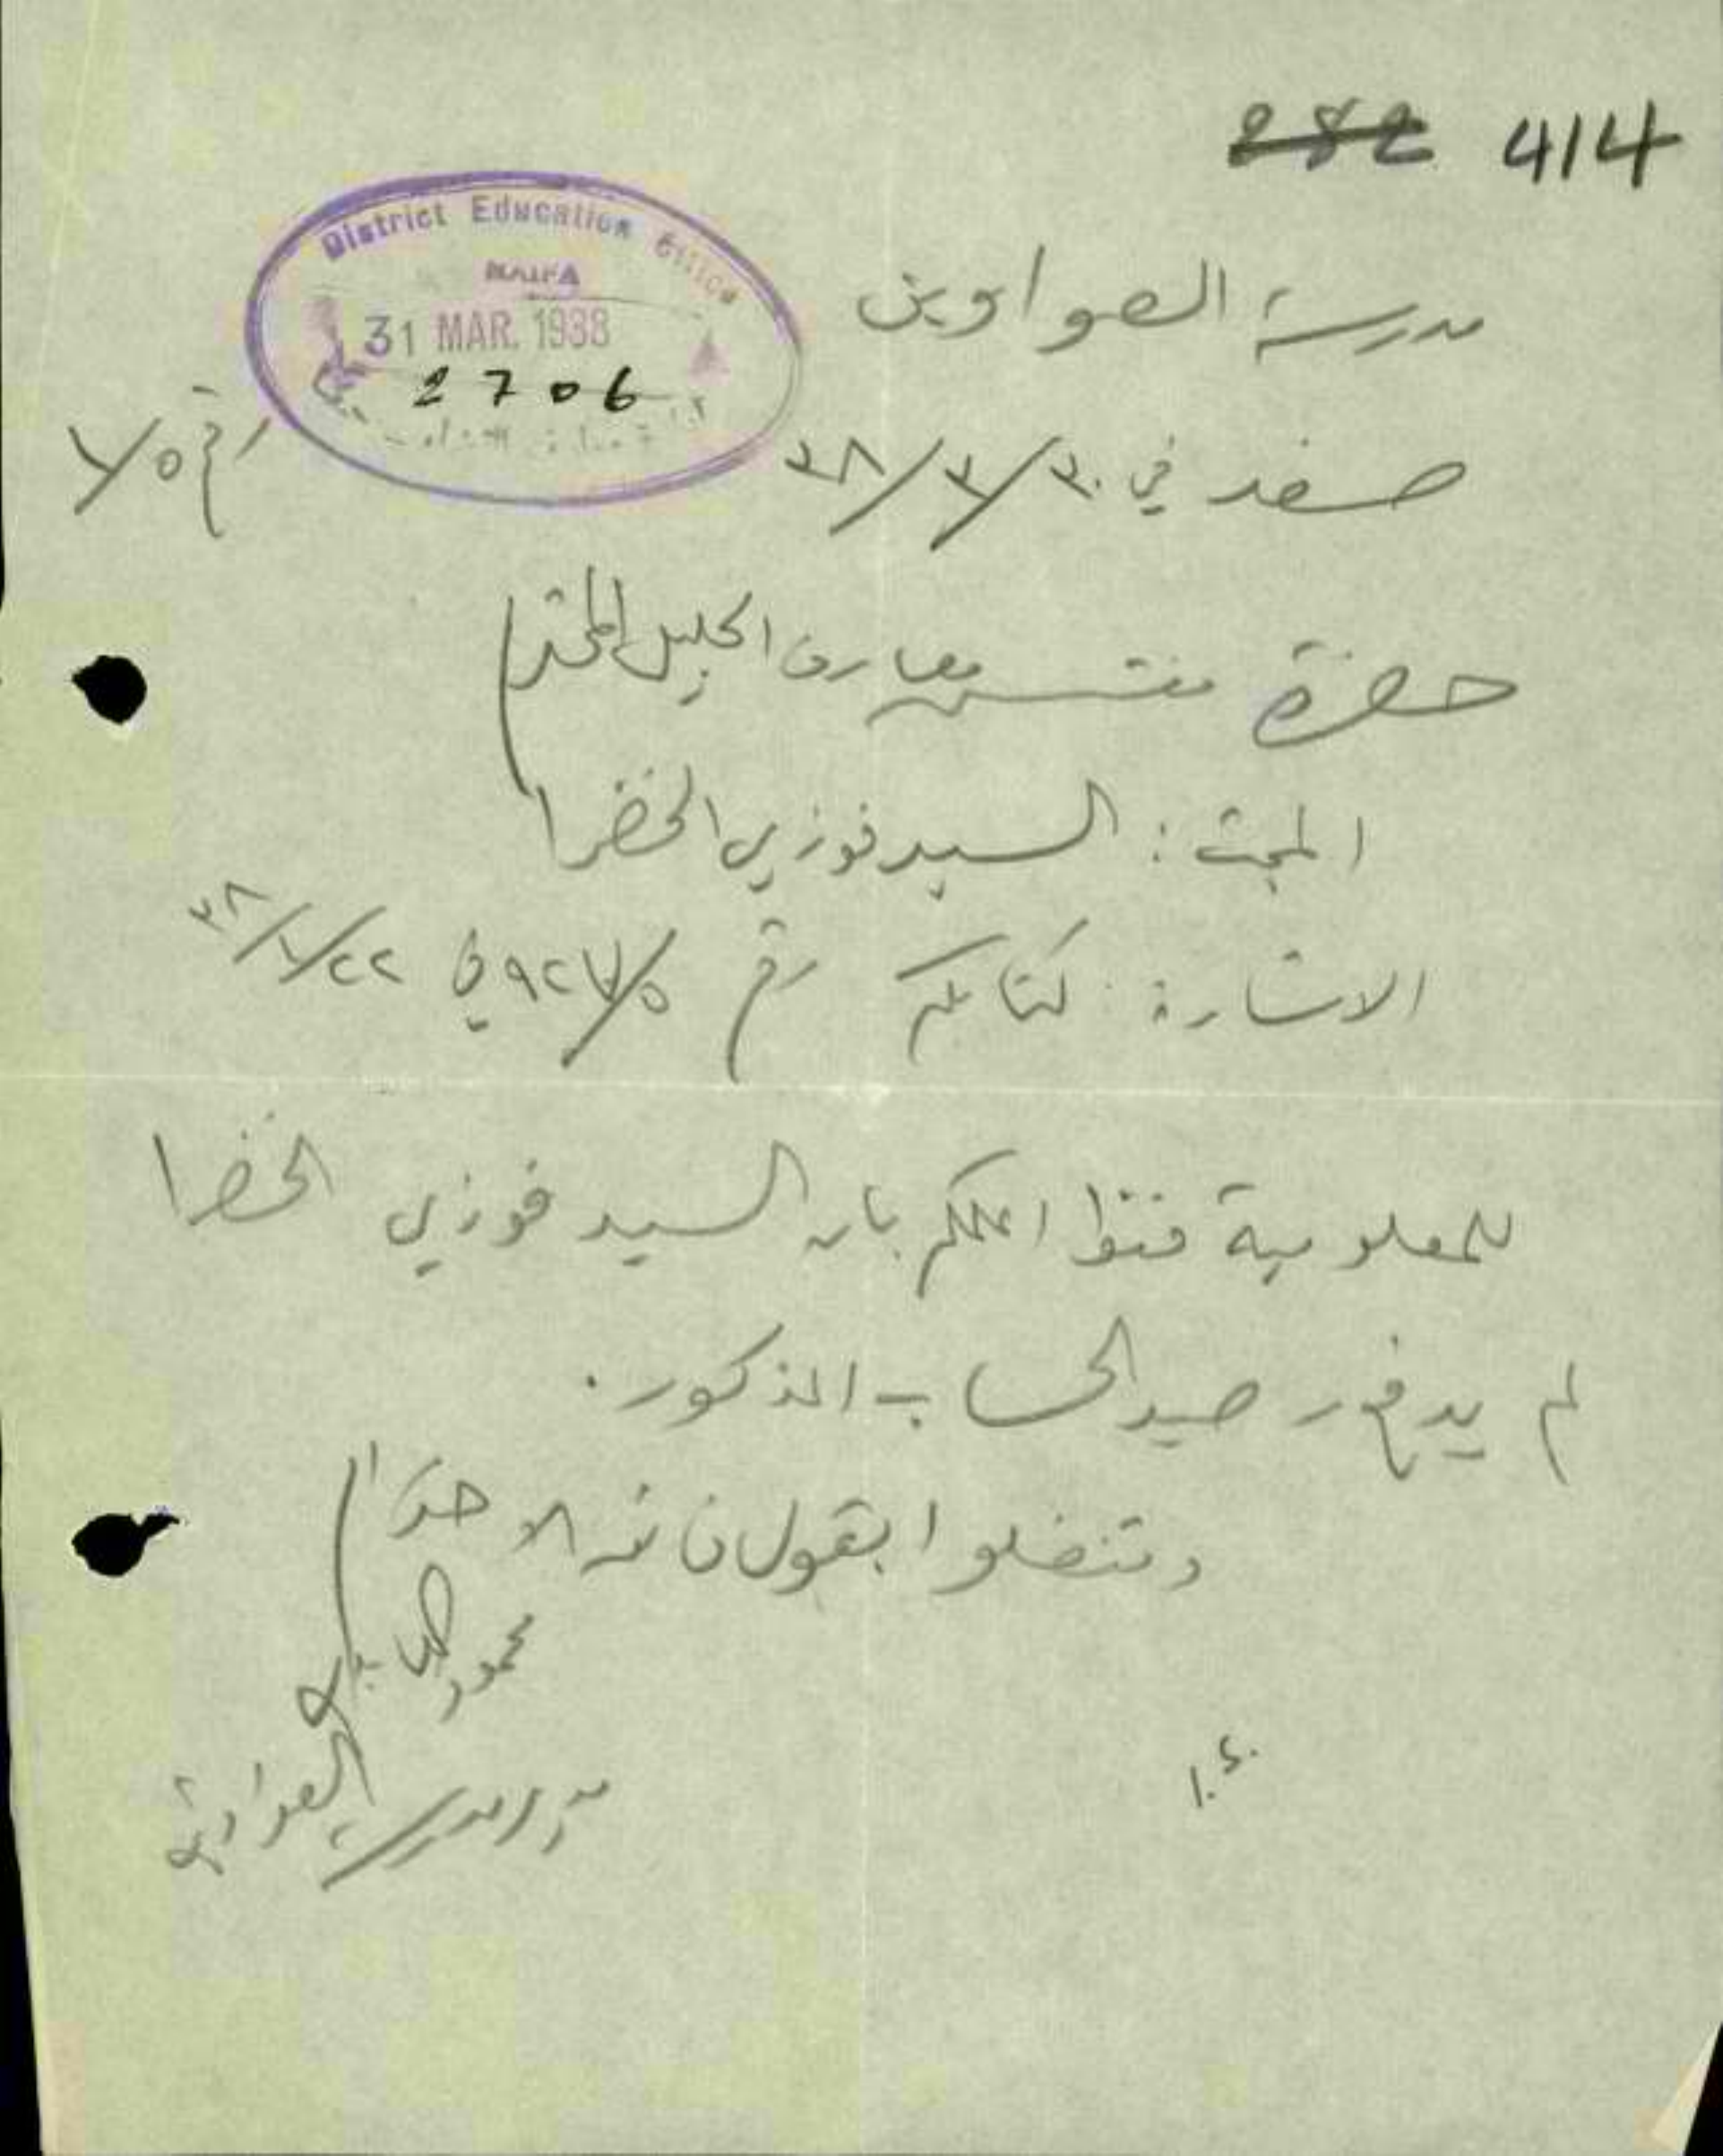 282 414
District Education Office
HAIFA
31 MAR. 1938
2706
مدرسة الصواوين
صفد في ٣٠/٣/٣٨
رقم ٧/٥
حضرة مفتش معارف الجليل المحترم
المبحث: السيد فوزي الخضرا
الاشارة: كتابكم رقم في
للمعلومية فقط اعلمكم بان السيد فوزي الخضرا
لم يدفع رصيد الحساب المذكور.
وتفضلوا بقبول فائق الاحترام
محمود
مدير مدرسة الصواوين